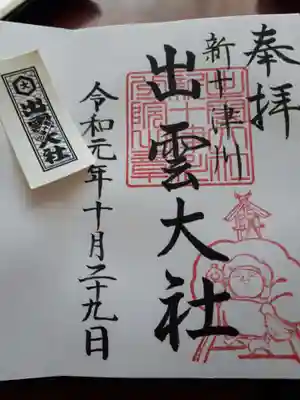 奉拝
新十津川
出雲大社
令和元年十月二十九日
出雲大社